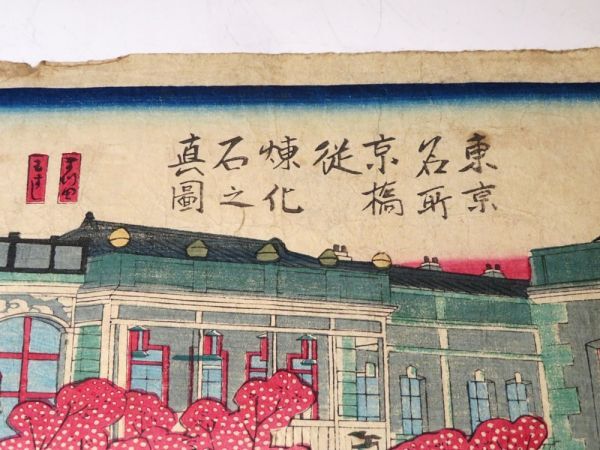 東京
名所
京橋
従
煉化
石之
真圖